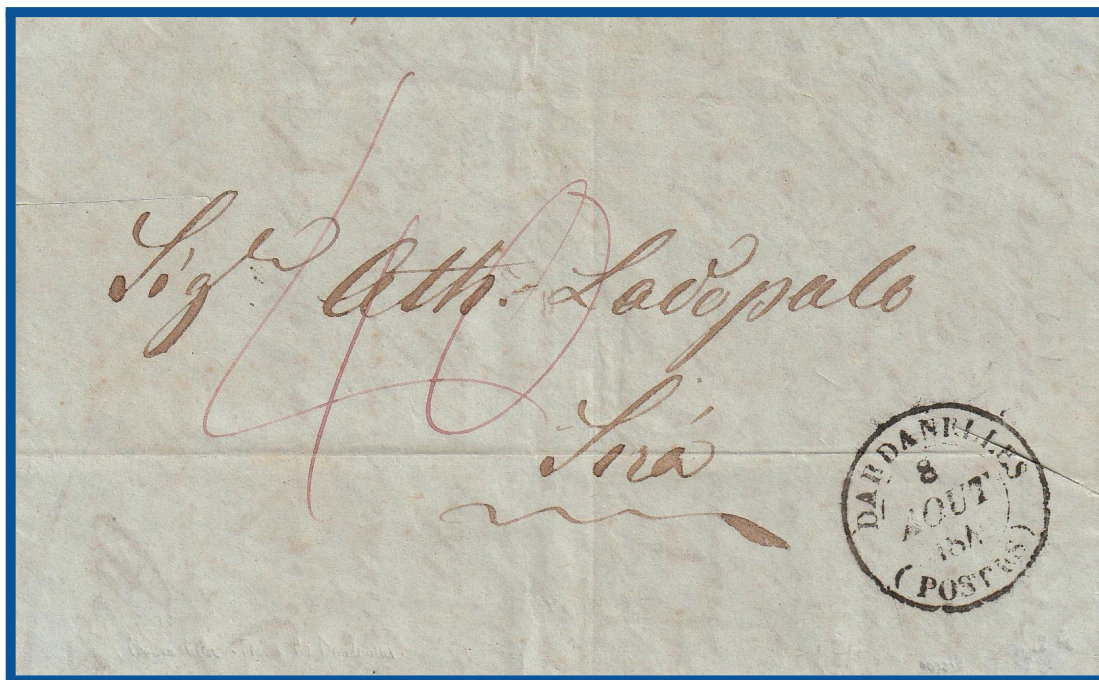 Sig.r Ath. Ladopulo
Sirá
40
DARDANELLES
8
AOUT
(POSTES)